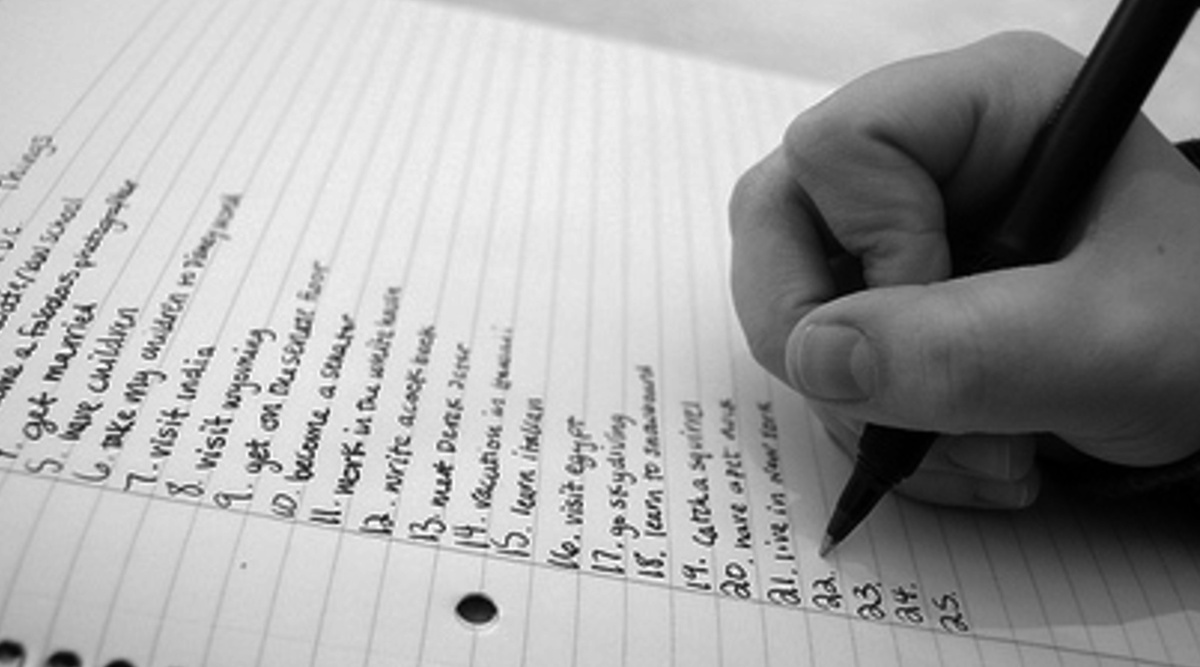 Things
DC
school
a fabulous photographer
5. get married
6. have children
7. take my children to disney world
8. visit India
9. visit wyoming
10. get on the senate floor
11. become a senator
12. work in the white house
13. write a cook book
14. meet Derek Jeter
15. vacation in
16. learn italian
17. visit egypt
18. go skydiving
19. learn to snowboard
20. catch a squirrel
21. have a pet
22. live in new york
23.
24.
25.